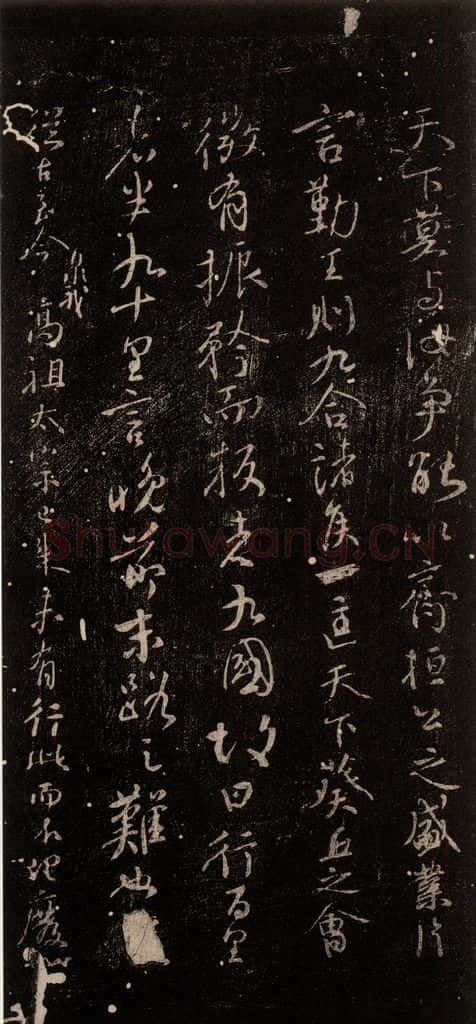 天下莫与汝争能以齊桓公之盛業片
言勤王則九合諸侯一匡天下葵丘之會
微有振矜而叛者九國故曰行百里
者半九十里言晚節末路之難也
從古至今洎我高祖太宗已來未有行此而不理廢
Shufawang.CN